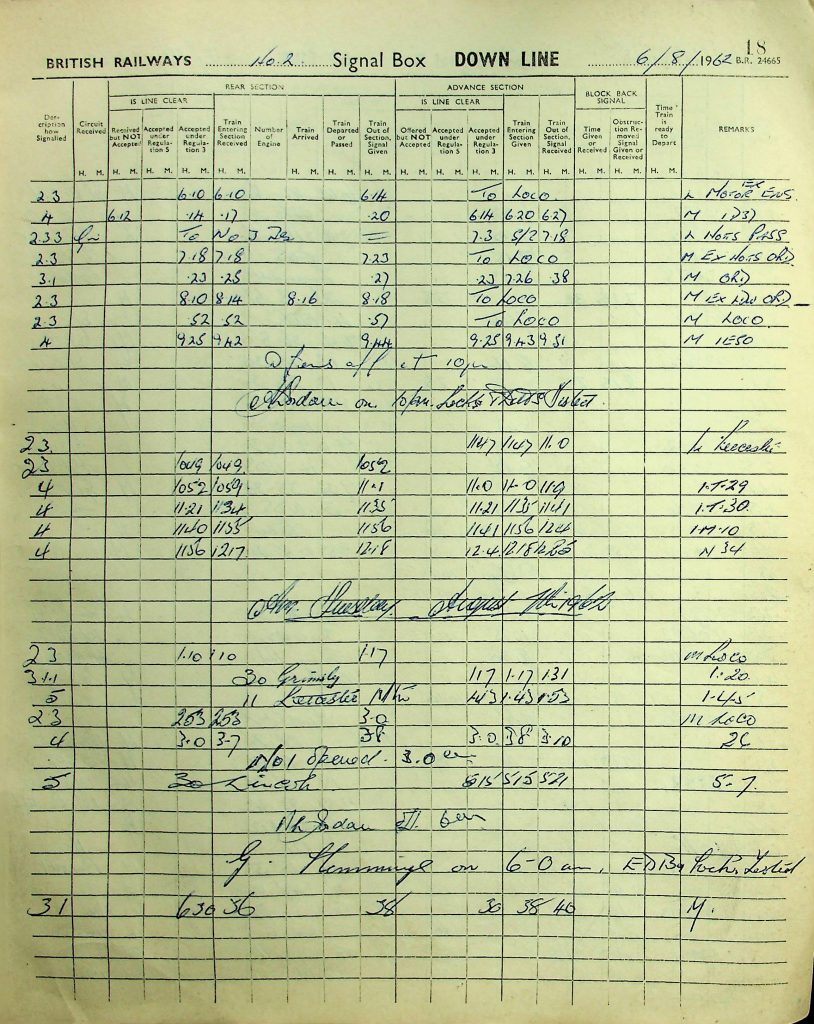 18
BRITISH RAILWAYS No. 2 Signal Box DOWN LINE 6/8/1962 B.R. 24665
REAR SECTION ADVANCE SECTION BLOCK BACK SIGNAL
IS LINE CLEAR IS LINE CLEAR
Description how Signalled Circuit Received Received but NOT Accepted Accepted under Regulation 5 Accepted under Regulation 3 Train Entering Section Received Number of Engine Train Arrived Train Departed or Passed Train Out of Section, Signal Given Offered but NOT Accepted Accepted under Regula-tion 5 Accepted under Regula-tion 3 Train Entering Section Given Train Out of Section, Signal Received Time Given or Received Obstruc-tion Re-moved Signal Given or Received Time Train is ready to Depart REMARKS
H. M. H. M. H. M. H. M. H. M. H. M. H. M. H. M. H. M. H. M. H. M. H. M. H. M. H. M. H. M. H. M.
2.3 6.10 6.10 6.14 To Loco L MOTOR EX ENS.
4 6.12 .14 .17 .20 6.14 6.20 6.27 M 1D31
2.33 To No 3 = 7.3 5/2 7.18 L NOTS PASS
2.3 7.18 7.18 7.23 To LOCO M EX NOTS ORD
3.1 .23 .25 .27 .23 7.26 .38 M ORD
2.3 8.10 8.14 8.16 8.18 To LOCO M EX LIN ORD
2.3 .52 .52 .57 To LOCO M LOCO
4 9.25 9.42 9.44 9.25 9.43 9.51 M 1E50
off at 10pm
on 10pm. Locks Tested.
23. 11.47 11.47 11.0 L Leicester
23 10.49 10.49 10.52
4 10.52 10.59 11.1 11.0 11.0 11.9 1.T.29
4 11.21 11.34 11.35 11.21 11.35 11.41 1.T.30.
4 11.40 11.55 11.56 11.41 11.56 12.4 1.M.10
4 11.56 12.17 12.18 12.4 12.18 12.25 N 34
Am. Tuesday. August 7th 1962
23 1.10 1.10 1.17 M Loco
3.1.1 30 Grimsby 1.17 1.17 1.31 1.20.
5 11 Leicester 1.43 1.43 1.53 1.45
23 2.53 2.53 3.0 M Loco
4 3.0 3.7 3.8 3.0 3.8 3.10 26
No 1 opened. 3.0 am
5 30 Lincoln 5.15 5.15 5.21 5-7.
Jordan off 6am
G. Flemming on 6-0 am. Locks Tested
31 6.30 36 38 30 38 40 M.